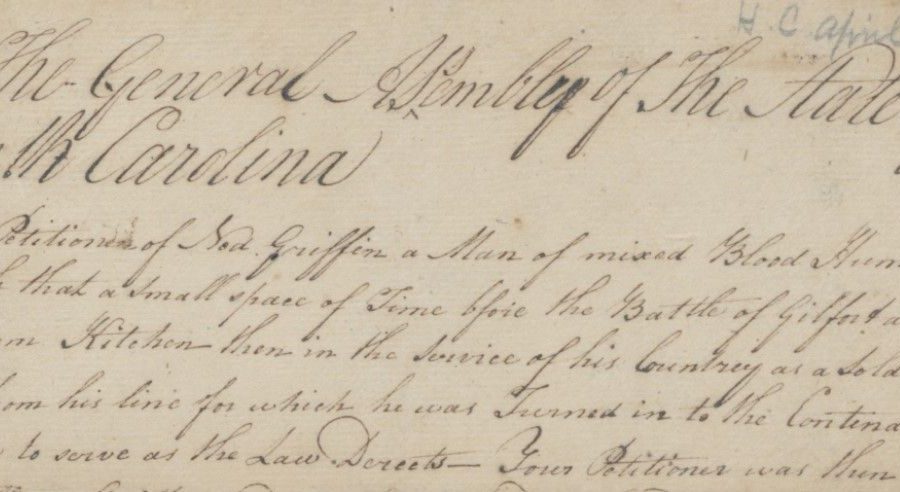 H. C. April
The General Assembly of The State
th Carolina
Petitioner of Ned Griffin a Man of mixed Blood Hum
that a small space of Time bfore the Battle of Gilfort a
m Kitchen then in the Service of his Countrey as a Sold
om his line for which he was Turned in to the Contina
to serve as the Law Derects— Your Petitioner was then